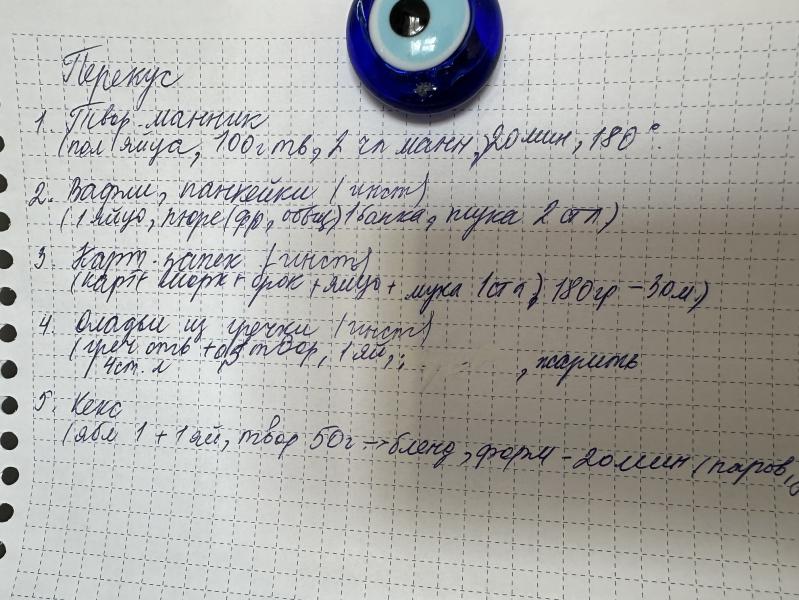 Перекус
1. Твор. манник
(пол яйца, 100г тв, 2 чл манн, 20мин, 180°.
2. Вафли, панкейки (инст)
(1 яйцо, пюре (фр, овощ) 1 банка, мука 2 стл)
3. Карт. запек (инст)
(карт + морк + брок + яйцо + мука 1стл), 180гр - 30м.)
4. Оладьи из гречки (инст)
(греч отв + твор, 1 яй, , жарить
4ст. л
5. Кекс
(ябл 1 + 1 яй, твор 50г → бленд, форм - 20мин (паров,